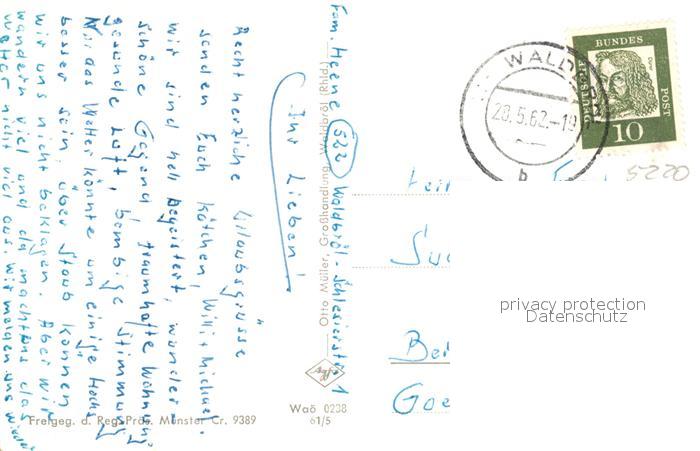 Ihr Lieben!
Recht herzliche Urlaubsgrüsse
senden Euch Kätchen, Willi + Michael.
Wir sind hell begeistert, wunder-
schöne Gegend, traumhafte Wohnung,
gesunde Luft, bombige Stimmung
Nur das Wetter könnte um einige
besser sein, über Staub können
wir uns nicht beklagen. Aber wir
wandern viel und da macht uns das
Wetter nicht viel aus. Wir melden uns wieder
Fam. Heene 522 Waldbröl - Schlesierstr. 1
Otto Müller, Großhandlung, Waldbröl (Rhld.)
Freigeg. d. Reg. Präs. Münster Cr. 9389
Waö 0238
61/5
WALDBRÖL
28.5.62.-19
b
BUNDES
POST
Dürer
10
5220
privacy protection
Datenschutz
Be
Goe